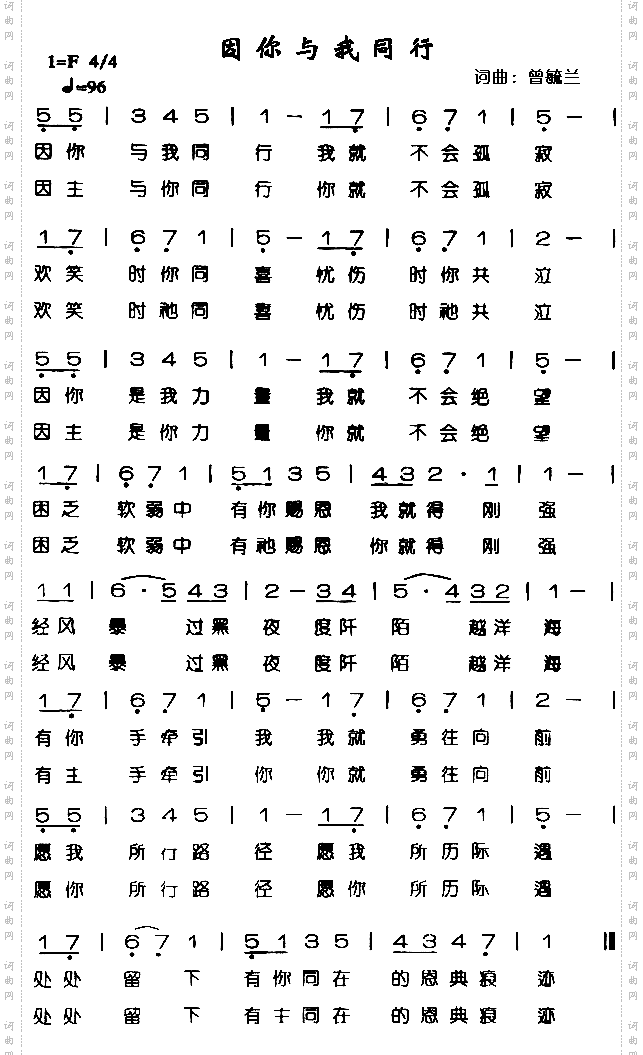 因你与我同行
1=F 4/4
♩=96
词曲：曾毓兰
5 5 | 3 4 5 | 1 - 1 7 | 6 7 1 | 5 -
因你 与我同 行 我就 不会孤 寂
因主 与你同 行 你就 不会孤 寂
1 7 | 6 7 1 | 5 - 1 7 | 6 7 1 | 2 -
欢笑 时你同 喜 忧伤 时你共 泣
欢笑 时祂同 喜 忧伤 时祂共 泣
5 5 | 3 4 5 | 1 - 1 7 | 6 7 1 | 5 -
因你 是我力 量 我就 不会绝 望
因主 是你力 量 你就 不会绝 望
1 7 | 6 7 1 | 5 1 3 5 | 4 3 2 · 1 | 1 -
困乏 软弱中 有你赐恩 我就得 刚 强
困乏 软弱中 有祂赐恩 你就得 刚 强
1 1 | 6 · 5 4 3 | 2 - 3 4 | 5 · 4 3 2 | 1 -
经风 暴 过黑 夜 度阡 陌 越洋 海
经风 暴 过黑 夜 度阡 陌 越洋 海
1 7 | 6 7 1 | 5 - 1 7 | 6 7 1 | 2 -
有你 手牵引 我 我就 勇往向 前
有主 手牵引 你 你就 勇往向 前
5 5 | 3 4 5 | 1 - 1 7 | 6 7 1 | 5 -
愿我 所行路 径 愿我 所历际 遇
愿你 所行路 径 愿你 所历际 遇
1 7 | 6 7 1 | 5 1 3 5 | 4 3 4 7 | 1
处处 留 下 有你同在 的恩典痕 迹
处处 留 下 有主同在 的恩典痕 迹